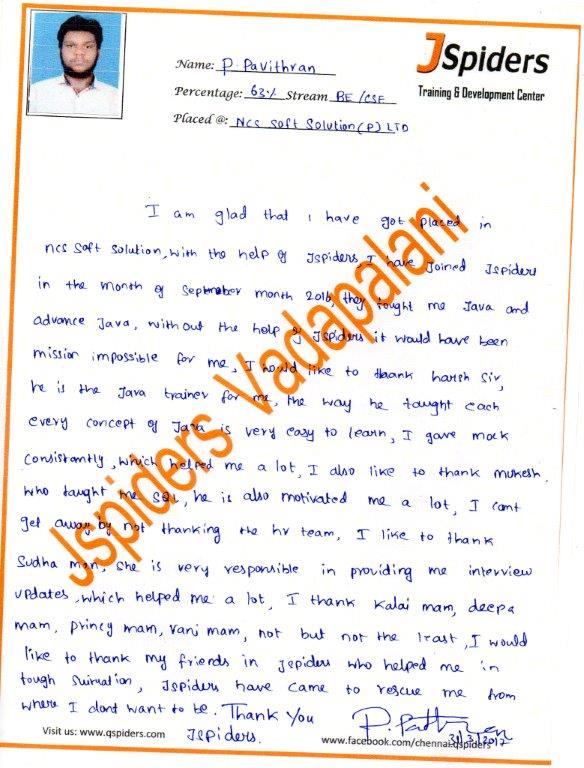 JSpiders
Training & Development Center
Name: P. Pavithran
Percentage: 63% Stream BE/CSE
Placed @: NCS Soft Solution (P) LTD
I am glad that I have got placed in
ncs soft solution, with the help of Jspiders, I have Joined Jspiders
in the month of September month 2016, they tought me Java and
advance Java, without the help of Jspiders it would have been
mission impossible for me, I would like to thank harsh sir,
he is the Java trainer for me, the way he taught each
every concept of Java is very easy to learn, I gave mock
consistantly, which helped me a lot, I also like to thank mukesh.
who taught me SQL, he is also motivated me a lot, I cant
get away by not thanking the hr team, I like to thank
Sudha mam, she is very responsible in providing me interview
updates, which helped me a lot, I thank Kalai mam, deepa
mam, princy mam, vani mam, not but not the least, I would
like to thank my friends in jspiders who helped me in
tough situation, Jspiders have came to rescue me from
where I dont want to be. Thank You
Jspiders.
31/3/2017
Visit us: www.qspiders.com
www.facebook.com/chennai.qspiders
Jspiders Vadapalani